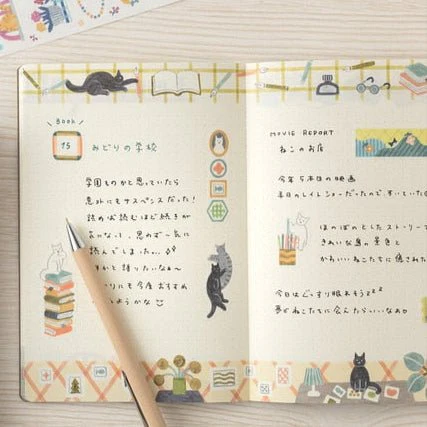 Book
15
みどりの学校
学園ものかと思っていたら
意外にもサスペンスだった!
読めば読むほど続きが
気になって、思わず一気に
読んでしまった…
かと語りたいなぁ〜
りにも今度おすすめ
しようかな
MOVIE REPORT
ねこのお店
今年5本目の映画
本日のレイトショーだったので、すいていた
ほのぼのとしたストーリー
きれいな島の景色と
かわいいねこたちに癒された
今日はぐっすり眠れそうzzz
夢でねこたちに会えたらいいなぁ